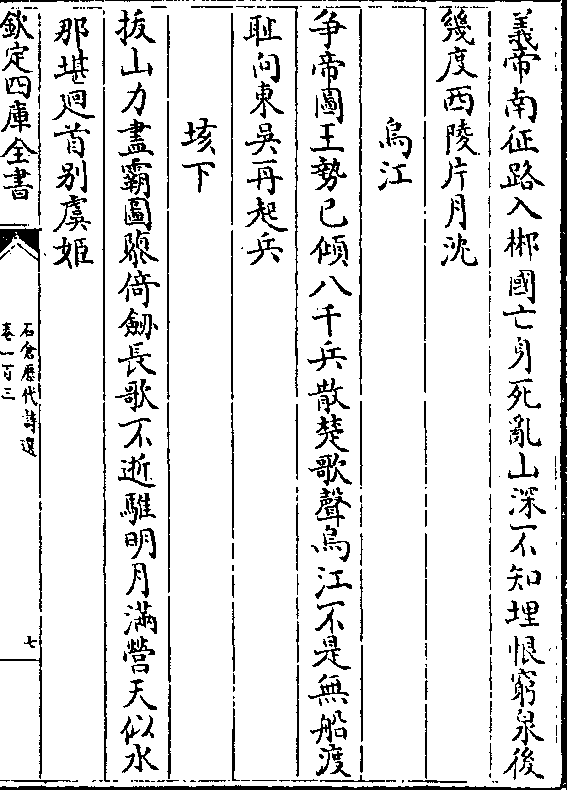 義帝南征路入郴國亡身死亂山深不知埋恨窮泉後
幾度西陵片月沈
烏江
爭帝圖王勢已傾八千兵散楚歌聲烏江不是無船渡
耻向東吳再起兵
垓下
拔山力盡霸圖隳倚劒長歌不逝騅明月滿營天似水
那堪廻首别虞姬
欽定四庫全書
石倉歷代詩選
卷一百三
七